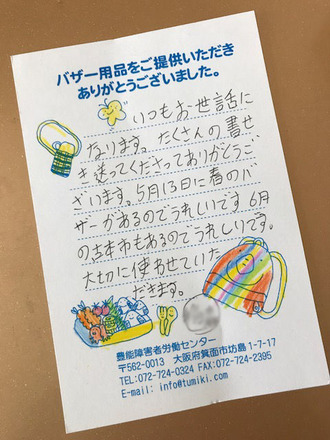 バザー用品をご提供いただき
ありがとうございました。
いつもお世話に
なります。たくさんの書せ
き送ってくださってありがとうご
ざいます。5月13日に春のバ
ザーがあるのでうれしいです 6月
の古本市もあるのでうれしいです。
大切に使わせていた
だきます。
豊能障害者労働センター
〒562-0013 大阪府箕面市坊島1-7-17
TEL:072-724-0324 FAX:072-724-2395
E-mail: info@tumiki.com